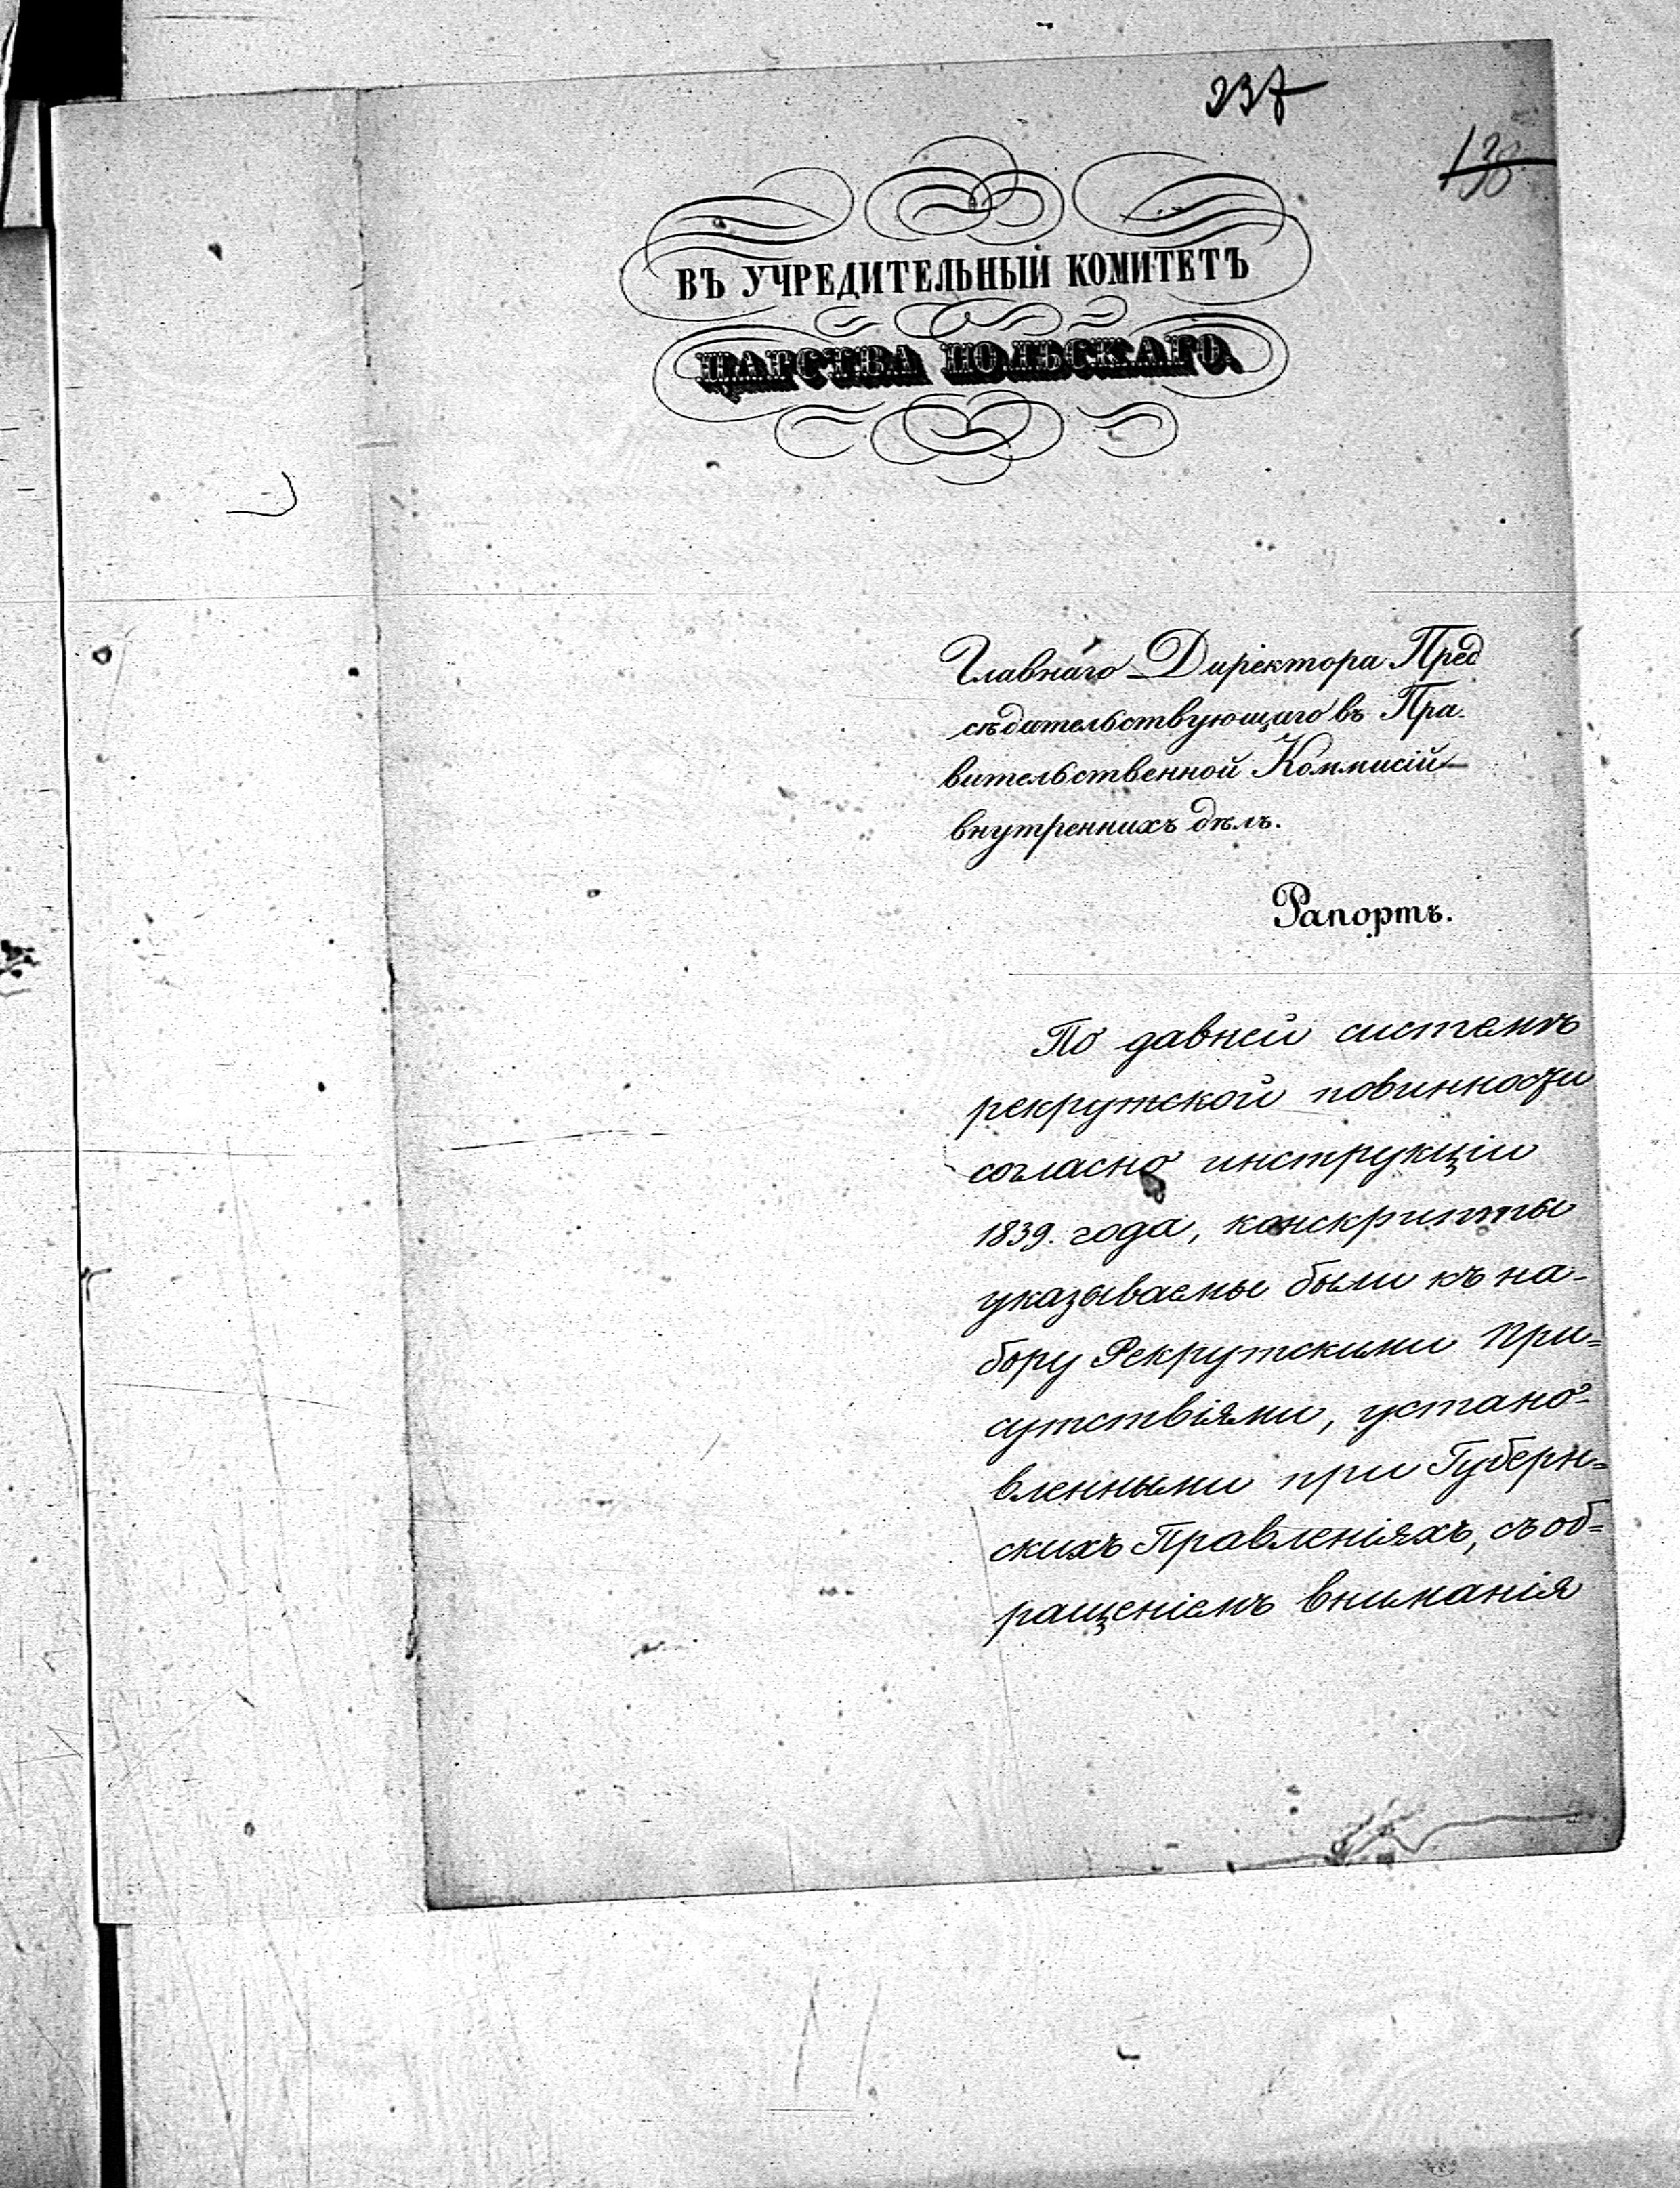 237
138
ВЪ УЧРЕДИТЕЛЬНЫЙ КОМИТЕТЪ
ЦАРСТВА ПОЛЬСКАГО.
Главнаго Диріектора Пред
сѣдательствующаго въ Пра-
вительственной Коммисій
внутреннихъ дѣлъ.
Рапортъ.
По давней системѣ
рекрутской повинности
согласно инструкціи
1839. года, конскрипты
указываемы были къ на-
бору Рекрутскими При=
сутствіями, устано-
вленными при Губерн=
скихъ Правленіяхъ, съ об=
ращеніемъ вниманія